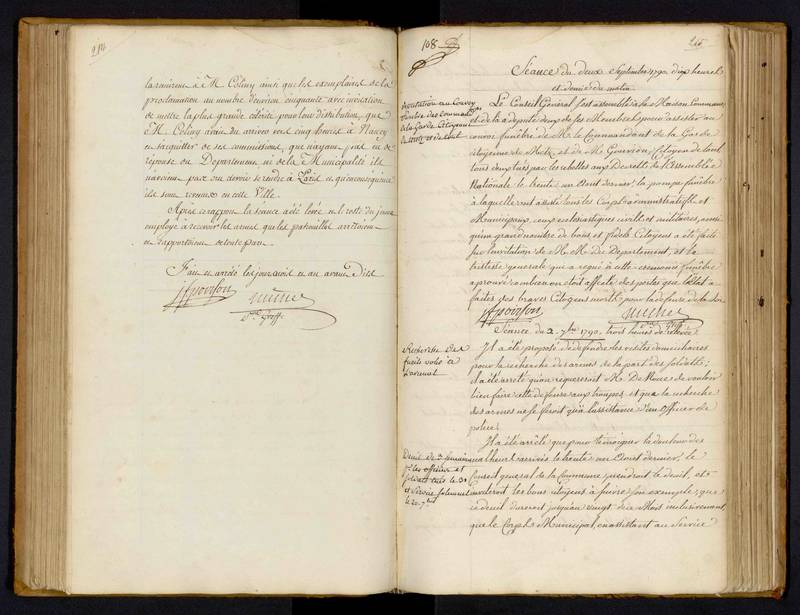 214
la remirent à M. Coliny ainsi que les exemplaires de la
proclamation au nombre d'environ cinquante avec invitation
de mettre la plus grande célérité pour leur distribution, que
M. Coliny avoit dû arriver vers cinq heures à Nancy
en s'acquitter de ses commissions, que n'ayant pas eu de
réponse du Departement ni de la Municipalité ils
n'avoient pas cru devoir se rendre à Paris et qu'en conséquence
ils sont revenus en cette Ville.
Après ce rapport la séance a été levée et le reste du jour
employé à recevoir les armes que les patrouilles arrêtoient
et rapportoient de toute part.
Fait et arrêté les jour, mois et an avant Dits
S.re Greffe
108
215
Séance du deux Septembre 1790 dix heures
et demie du matin
Deputation au Convoy
funebre des Command.
de la Garde Citoyenne
de Metz et de Toul
Le Conseil General s'est assemblé à la Maison Commune
et de là a deputé deux de ses Membres pour assister au
convoi funèbre de M. le Commandant de la Garde
citoyenne de Metz et de M. Gouvion, Citoyen de Toul
tous deux tués par les rebelles aux Decrets de l'Assemblée
Nationale le trente un Aout dernier, la pompe funèbre
à laquelle ont assisté tous les Corps administratifs et
Municipaux, ceux ecclesiastiques civils et militaires, ainsi
qu'un grand nombre de bons et fideles Citoyens a été faite
sur l'invitation de M.M. Du Departement, et la
tristesse generale qui a regné à cette ceremonie funèbre
a prouvé combien on étoit affecté des pertes que l'état a
faites des braves Citoyens morts pour la défense de la Loi
Séance du 2. 7bre 1790, trois heures de relevée
Recherche des
fusils volés à
l'arsenal
Il a été proposé de défendre les visites domiciliaires
pour la recherche des armes de la part des soldats;
il a été arrêté qu'on requereroit M. De Noue de vouloir
bien faire cette défense aux troupes et que la recherche
des armes ne se feroit qu'à l'assistance d'un officier de
police.
Deuil de 3 semaines
pr les officiers et
soldats tués le 31
et Service solennel
le 20 7bre
Il a été arrêté que pour témoigner la douleur des
malheurs arrivés le trente un Aout dernier, le
Conseil general de la Commune prendroit le deuil, et
inviteroit les bons citoyens à suivre son exemple; que
ce deuil dureroit jusqu'au vingt du Mois inclusivement,
que le Corps Municipal, en assistant au Service